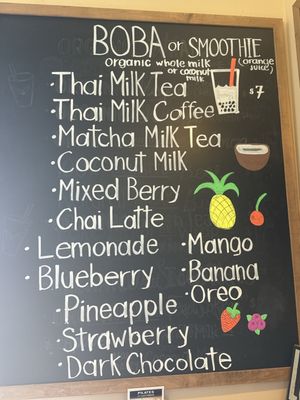 BOBA or SMOOTHIE
organic whole milk
or coconut
milk
(orange
juice)
$7
· Thai Milk Tea
· Thai Milk Coffee
· Matcha Milk Tea
· Coconut Milk
· Mixed Berry
· Chai Latte
· Lemonade
· Mango
· Blueberry
· Banana
· Oreo
· Pineapple
· Strawberry
· Dark Chocolate
PILATES